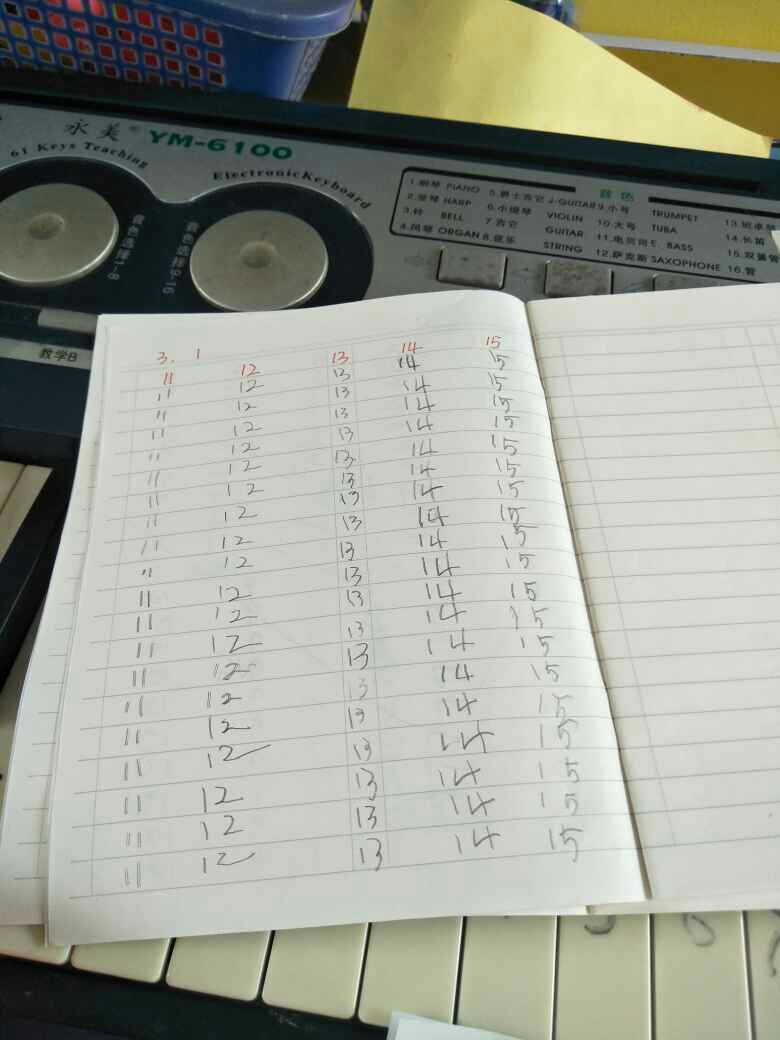 永美® YM-6100
61 Keys Teaching
ElectronicKeyboard
音色选择1-8
音色选择9-16
音色
1.钢琴 PIANO 5.爵士吉它 J-GUITAR 9.小号 TRUMPET
2.竖琴 HARP 6.小提琴 VIOLIN 10.大号 TUBA
3.钟 BELL 7.吉它 GUITAR 11.电贝司 E. BASS 14.长笛
4.风琴 ORGAN 8.弦乐 STRING 12.萨克斯 SAXOPHONE 15.双簧管
16.管
教学B
3. 1
11 12 13 14 15
11 12 13 14 15
11 12 13 14 15
11 12 13 14 15
11 12 13 14 15
11 12 13 14 15
11 12 13 14 15
11 12 13 14 15
11 12 13 14 15
11 12 13 14 15
11 12 13 14 15
11 12 13 14 15
11 12 13 14 15
11 12 13 14 15
11 12 13 14 15
11 12 13 14 15
11 12 13 14 15
11 12 13 14 15
11 12 13 14 15
11 12 13 14 15